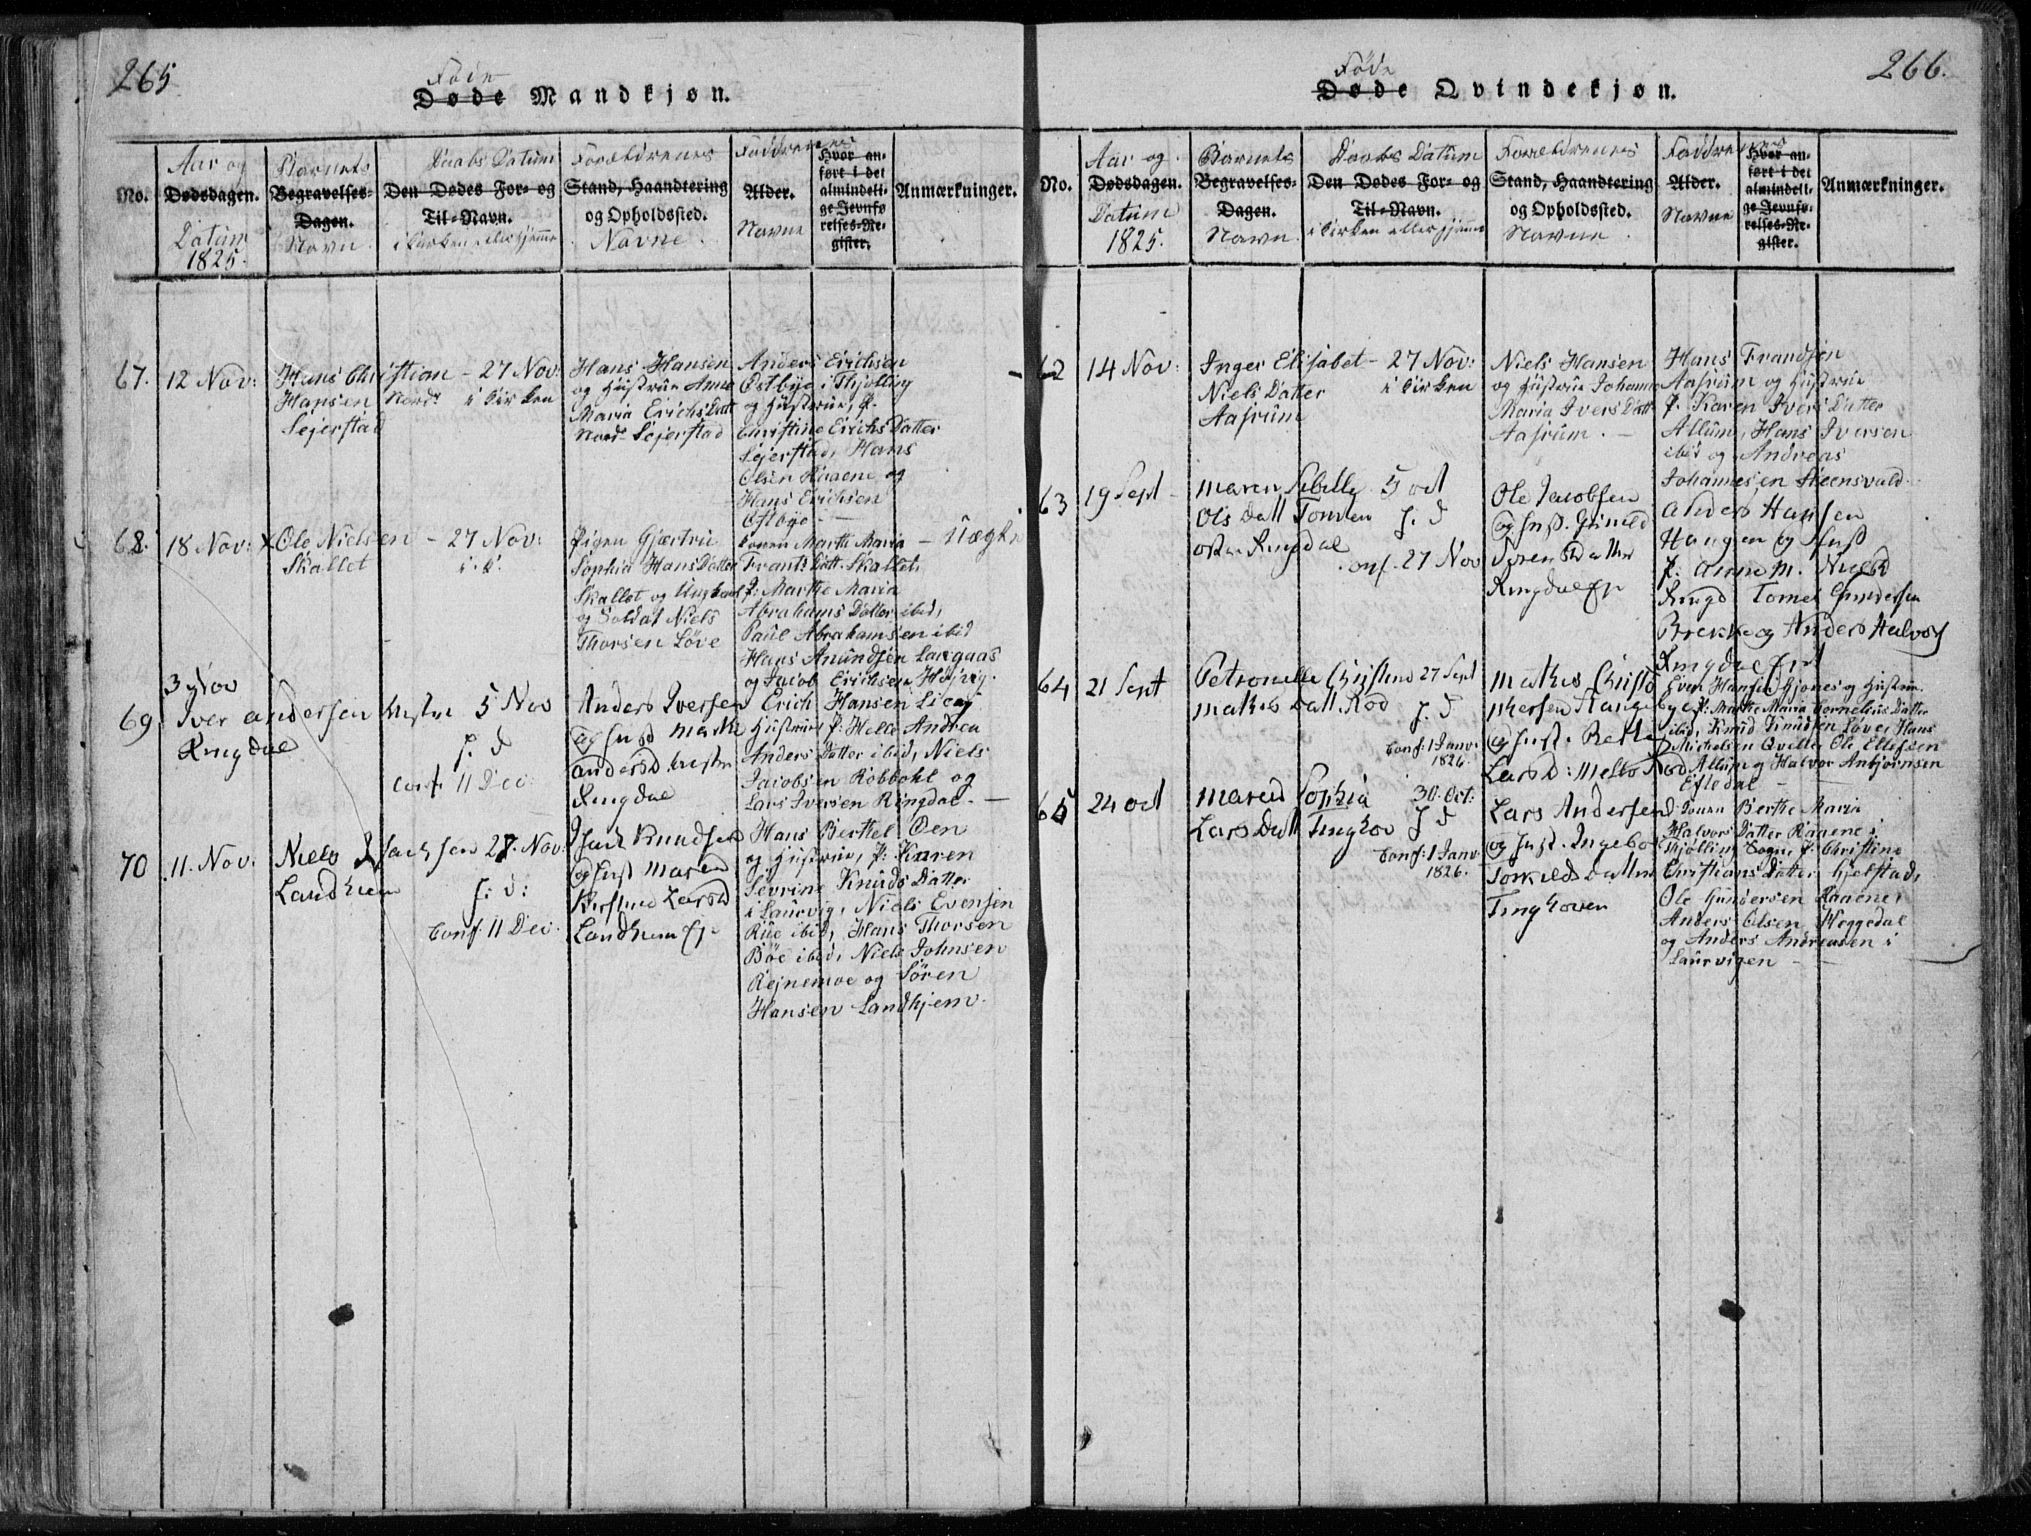 265
Føde
Døde Mandkjøn.
No.
Aar og
Dødsdagen.
Datum
1825.
Barnets
Begravelses-
Dagen.
Navn
Daabs Datum
Den Dødes For- og
Til-Navn.
i Kirken eller hjemme
Forældrenes
Stand, Haandtering
og Opholdssted.
Navne.
Faddrenes
Alder.
Navne
Hvor an-
ført i det
almindeli-
ge Jevnfø-
relses-Re-
gister.
Anmærkninger.
67. 12 Nov:
Hans Christian - 27 Nov:
Hansen Nord- i Kirken
Sejerstad
Hans Hansen
og Hustrue Anne
Maria Erichs Datt
Nord- Sejerstad
Anders Erichsen
Østbye i Thjølling
og Hustrue, P.
Christine Erichs Datter
Sejerstad, Hans
Olsen Haaene og
Hans Erichsen
Østbye. -
68. 18 Nov: x
Ole Nielsen - 27 Nov:
Skallet i. K.
Pigen Gjertru
Sophia Hans Datter
Skallet og Ungkarl
og Soldat Niels
Thorsen Løve
Konen Marthe Maria - Uægte
Frants Datt. Skallet,
P: Marthe Maria
Abrahams Datter ibid,
Paul Abrahamsen ibid
Hans Amundsen Langaas
og Jacob Erichsen Højvig.
69 3 Nov
Iver Andersen 5 Nov
Ringdal J. d
Conf 11 Dec:
Anders Iversen
og Hust Marthe
Ringdal
Erich Hansen
Hustrue P: Helle Andrea
Anders Datter ibid, Niels
Jacobsen Robbohl og
Lars Iversen Ringdal. -
70 11. Nov:
Niels Isachsen 27 Nov:
Landhiem J: d:
Conf 11 Dec:
Isach Knudsen
og Hust Maren
Kirstine Larsd
Landhiem
Hans Berthel Øen
og Hustrue, P: Karen
Sevrine Knuds Datter
i Laurvig, Niels Evensen
Rue ibid, Hans Thorsen
Bøe ibid, Niels Johnsen
Rejnemoe og Søren
Hansen Landhjem.
266.
Føde
Døde Qvindekjøn.
No.
Aar og
Dødsdagen.
Datum
1825.
Barnets
Begravelses-
Dagen.
Navn
Daabs Datum
Den Dødes For- og
Til-Navn.
i Kirken eller hjemme
Forældrenes
Stand, Haandtering
og Opholdssted.
Navne.
Faddrenes
Alder.
Navne
Hvor an-
ført i det
almindeli-
ge Jevnfø-
relses-Re-
gister.
Anmærkninger.
62 14 Nov:
Inger Elisabet - 27 Nov:
Niels Datter i Kirken
Aasrum
Niels Hansen
og Hustrue Johanne
Maria Ivers Datt
Aasrum. -
Hans Frandsen
Aasrum og Hustrue
P. Karen Ivers Datter
Allum, Hans Iversen
ibid og Andreas
Johannesen Steensvald.
63 19 Sept
Maren Sibille 5 oct
Ols Datt J. d
Ringdal
Conf. 27 Nov
Ole Jacobsen
og Hust. Gunild
Sørens Datter
Ringdal
Anders Hansen
Haugen og Hust
P. Anne M. Nielsd
Ringd Tomes Gundersen
Brekke og Anders Halvors
Ringdal
64 21 Sept
Petronelle Christine 27 Sept
Mathis Datt Rød J. d
Conf: 1 Janv:
1826.
Mathis Christo
phersen Hauge
og Hust. Berthe
Larsd: Melto Rød
Even Hansen Gjønes og Hustrue
P: Marthe Maria Cornelius Datter
ibid, Knud Knudsen Løve, Hans
Michelsen Qvelle, Ole Ellefsen
Allum og Halvor Anbjørnsen
Efledal -
65 24 oct
Maren Sophia 30. Oct:
Lars Datt Tinghov J. d
Conf: 1 Janv:
1826.
Lars Andersen
og Hust. Ingebor
Torkilds Datter
Tinghoven
P. Konen Berthe Maria
Halvors Datter Raaene i
Thjølling Sogn, P. Christine
Christians Datter Hjelstad,
Ole Gundersen Raaene,
Anders Olsen Heggedal
og Anders Andreasen i
Laurvigen -